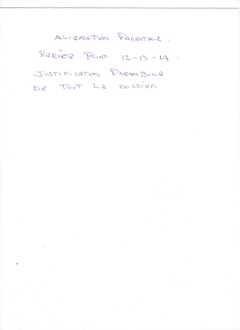 ALIENATION PARENTALE.
REPRISE POINT 12-13-14.
JUSTIFICATION PREAMBULE
DE TOUT LE DOSSIER